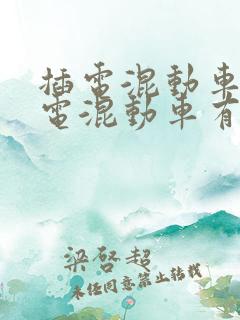 插電混動車
電混動車有
梁啓超
未经同意禁止转载